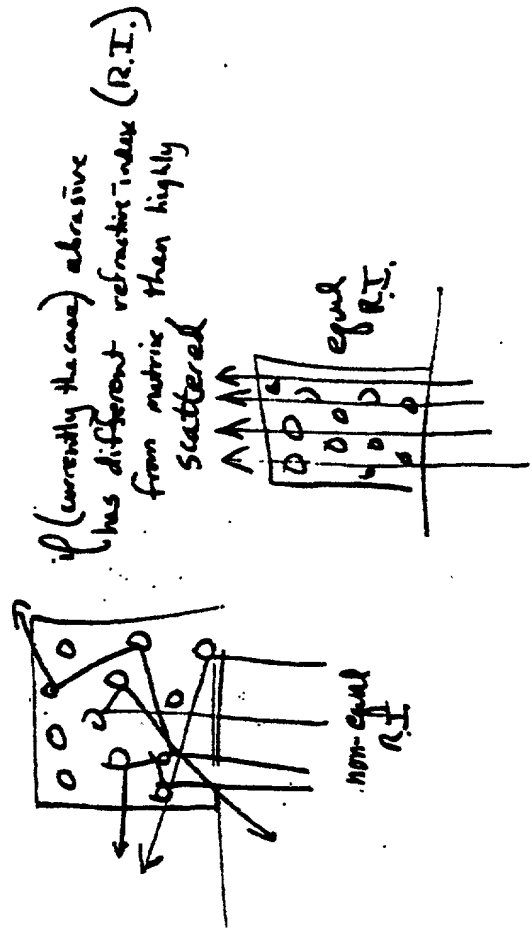 if (currently the case) abrasive
has different refractive-index (R.I.)
from matrix then highly
scattered
equal
R.I.
non-equal
R.I.